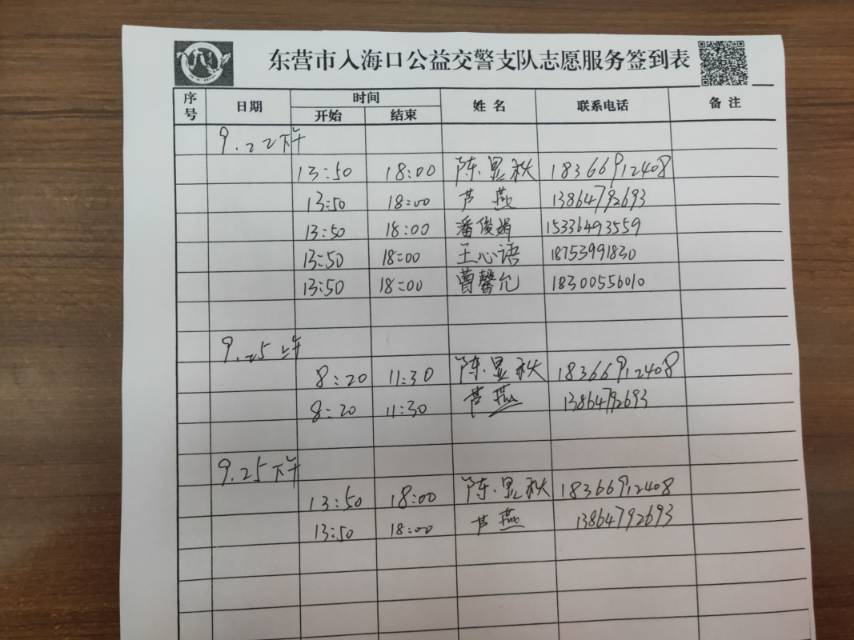 东营市入海口公益交警支队志愿服务签到表
序号 日期 时间 姓名 联系电话 备注
开始 结束
9.22下午
13:50 18:00 陈显秋 18366912408
13:50 18:00 芦燕 13864792693
13:50 18:00 潘俊娟 15336493559
13:50 18:00 王心语 18753991830
13:50 18:00 曹馨允 18300556010
9.25上午
8:20 11:30 陈显秋 18366912408
8:20 11:30 芦燕 13864792693
9.25下午
13:50 18:00 陈显秋 18366912408
13:50 18:00 芦燕 13864792693